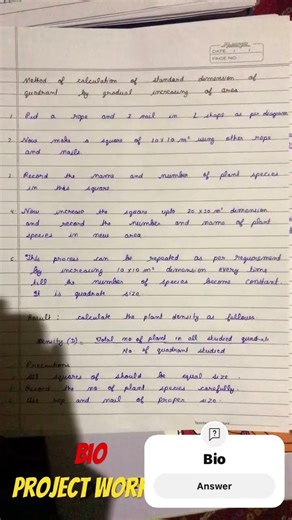 DATE : / /
PAGE NO.
Method of calculation of standard dimension of
quadrant by gradual increasing of area
1. Put a rope and 3 nail in L shape as per diagram
2. Now make a square of 10 x 10 m² using other rope
and nails
3. Record the name and number of plant species
in this square
4. Now increase the square upto 20 x 20 m² dimension
and record the number and name of plant
species in new area
5. This process can be repeated as per requirement
by increasing 10 x 10 m² dimension every time
till the number of species become constant
It is quadrate size
Result : calculate the plant density as follows
Density (D) = Total no of plant in all studied quadrats
No. of quadrant studied
Precautions
All squares of should be equal size
Record the no of plant species carefully.
Use rop and nail of proper size.
BIO
PROJECT WORK
Bio
Answer